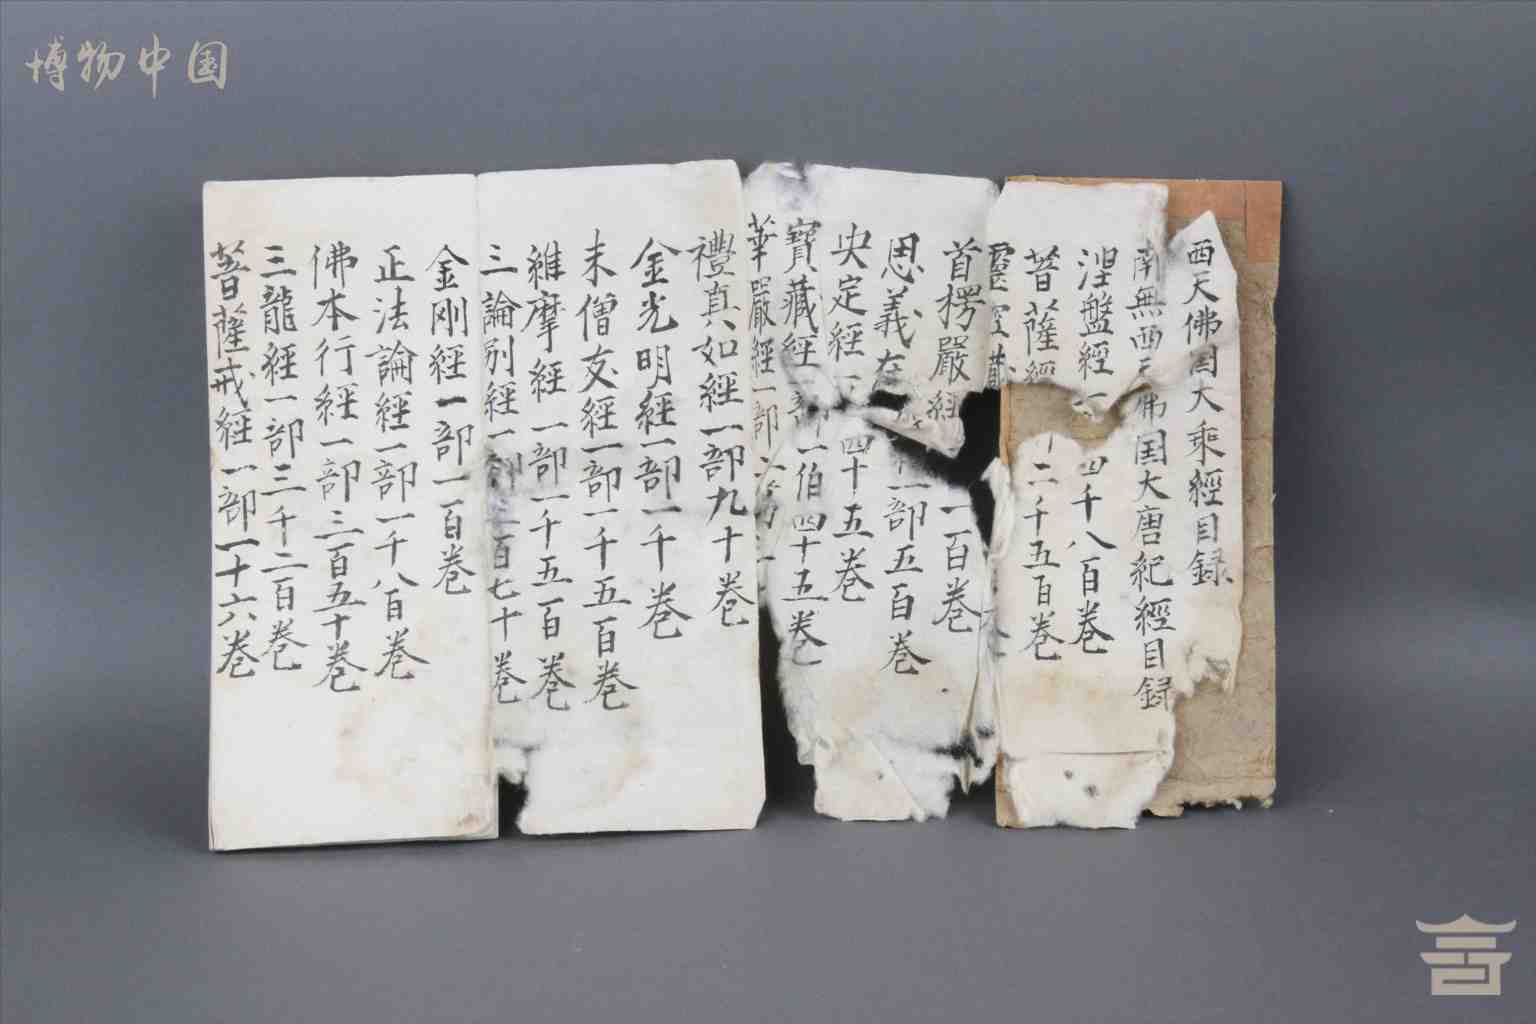 博物中国
西天佛国大乘經目録
南無西天佛国大唐紀經目録
涅盤經一 四千八百巻
菩薩經 二千五百巻
靈空藏
首楞嚴經 一百巻
恩義在 一部五百巻
央定經一 四十五巻
寶藏經一部一伯四十五巻
華嚴經一部
禮真如經一部九十巻
金光明經一部一千巻
未僧友經一部一千五百巻
維摩經一部一千五百巻
三論別經一部二百七十巻
金刚經一部一百巻
正法論經一部一千八百巻
佛本行經一部三百五十巻
三龍經一部三千二百巻
菩薩戒經一部一十六巻